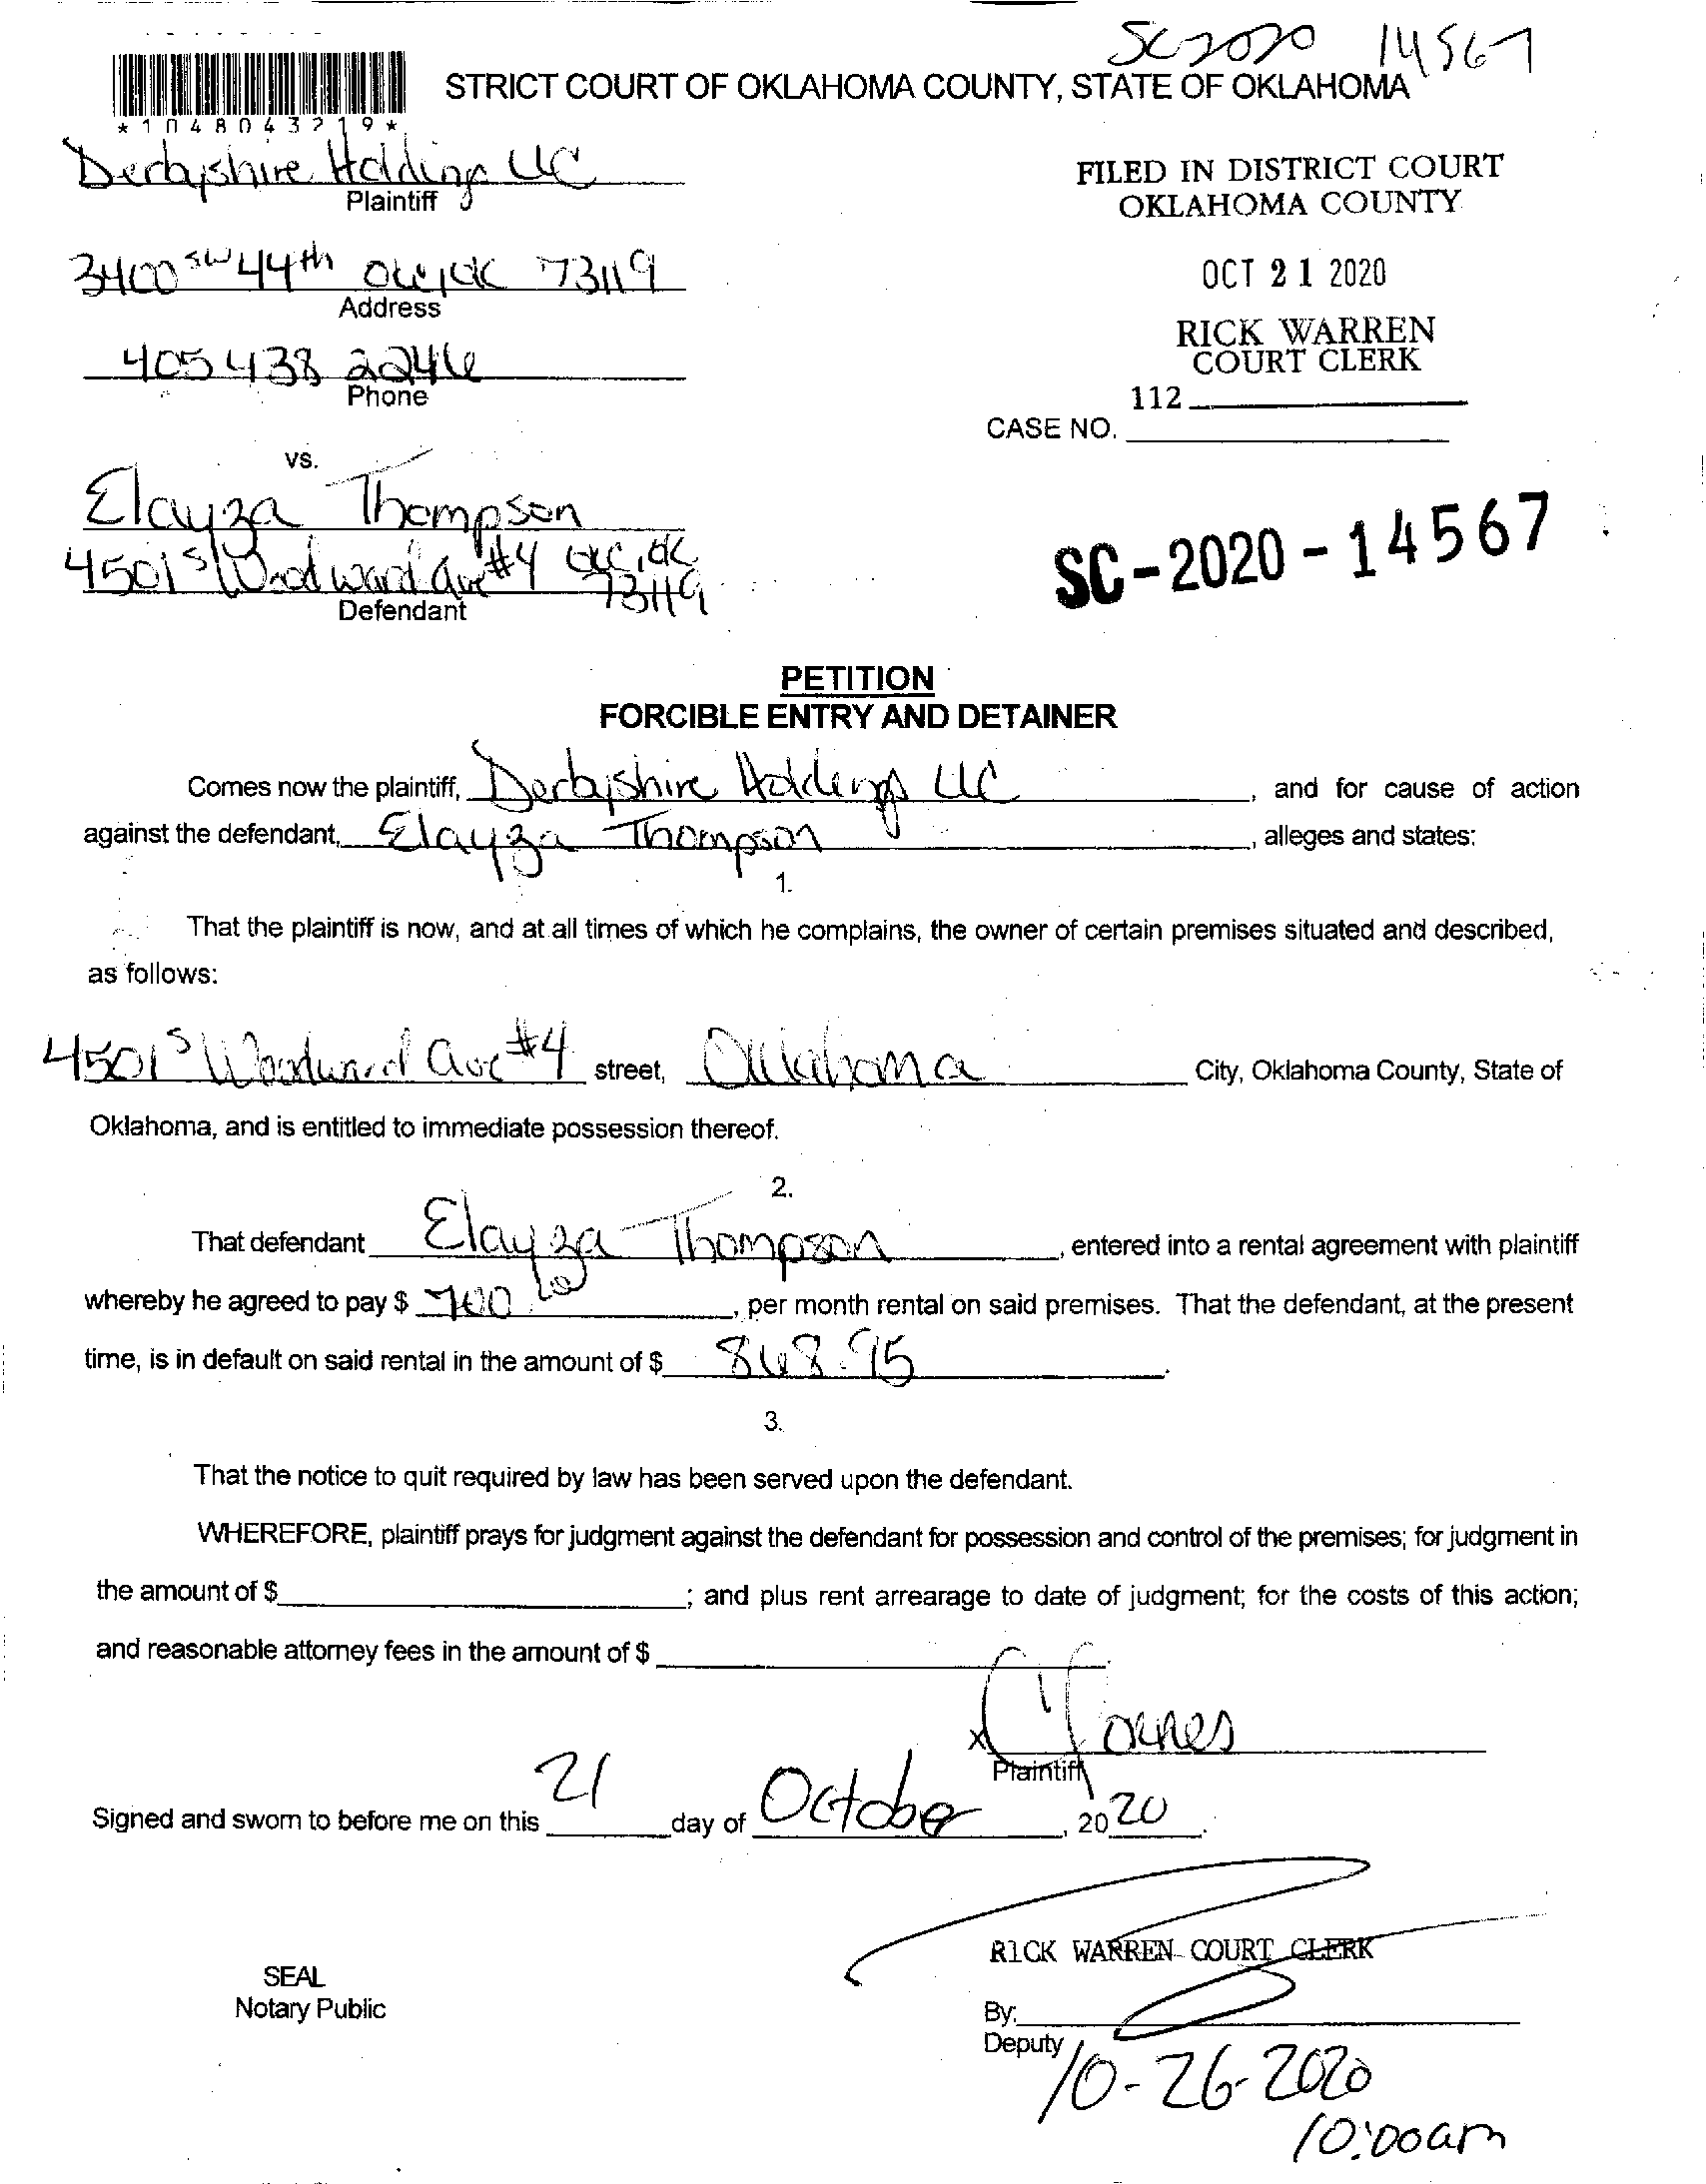 SC2020 14567
STRICT COURT OF OKLAHOMA COUNTY, STATE OF OKLAHOMA
*1048043219*
Derbyshire Holdings LLC
Plaintiff
FILED IN DISTRICT COURT
OKLAHOMA COUNTY
3400 SW 44th OKC, OK 73119
Address
OCT 21 2020
RICK WARREN
COURT CLERK
405 438 2246
Phone
112
CASE NO.
vs.
Elayza Thompson
4501 S Woodward Ave #4 OKC, OK
73119
Defendant
SC-2020-14567
PETITION
FORCIBLE ENTRY AND DETAINER
Comes now the plaintiff, Derbyshire Holdings LLC, and for cause of action
against the defendant, Elayza Thompson, alleges and states:
1.
That the plaintiff is now, and at all times of which he complains, the owner of certain premises situated and described,
as follows:
4501 S Woodward Ave #4 street, Oklahoma City, Oklahoma County, State of
Oklahoma, and is entitled to immediate possession thereof.
2.
That defendant Elayza Thompson, entered into a rental agreement with plaintiff
whereby he agreed to pay $ 700, per month rental on said premises. That the defendant, at the present
time, is in default on said rental in the amount of $ 868.95.
3.
That the notice to quit required by law has been served upon the defendant.
WHEREFORE, plaintiff prays for judgment against the defendant for possession and control of the premises; for judgment in
the amount of $ ; and plus rent arrearage to date of judgment; for the costs of this action;
and reasonable attorney fees in the amount of $
X
Plaintiff
Signed and sworn to before me on this 21 day of October, 2020.
RICK WARREN COURT CLERK
SEAL
Notary Public
By:
Deputy
10-26-2020
10:00am